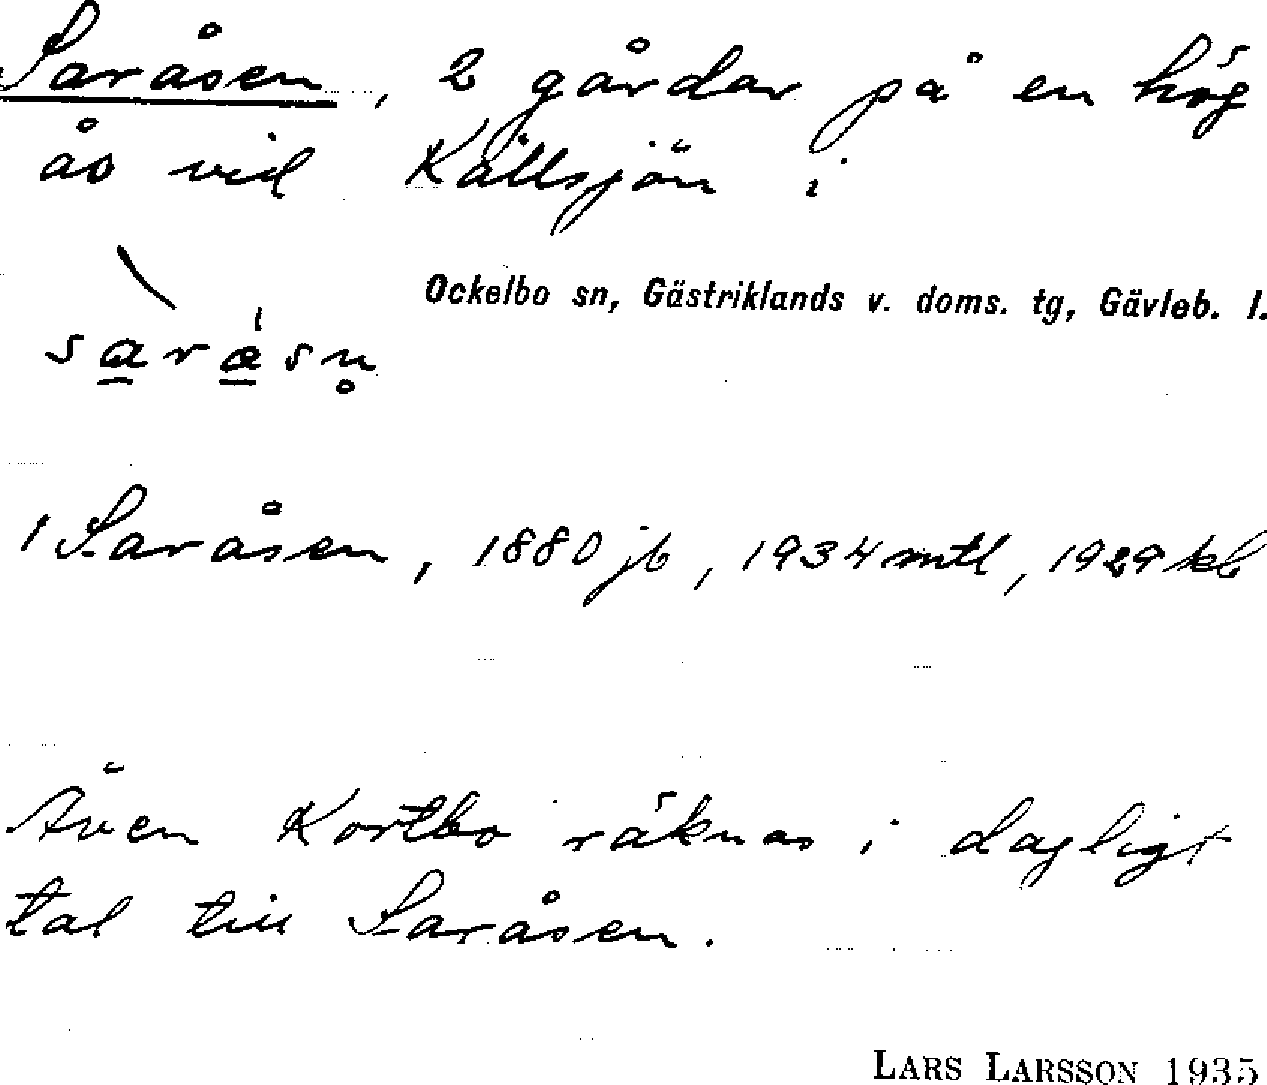 Saråsen, 2 gårdar på en hög
ås vid Källsjön i
Ockelbo sn, Gästriklands v. doms. tg, Gävleb. l.
1 Saråsen, 1880 jb, 1934 mtl, 1929 kb
Även Kortbo räknas i dagligt
tal till Saråsen.
LARS LARSSON 1935